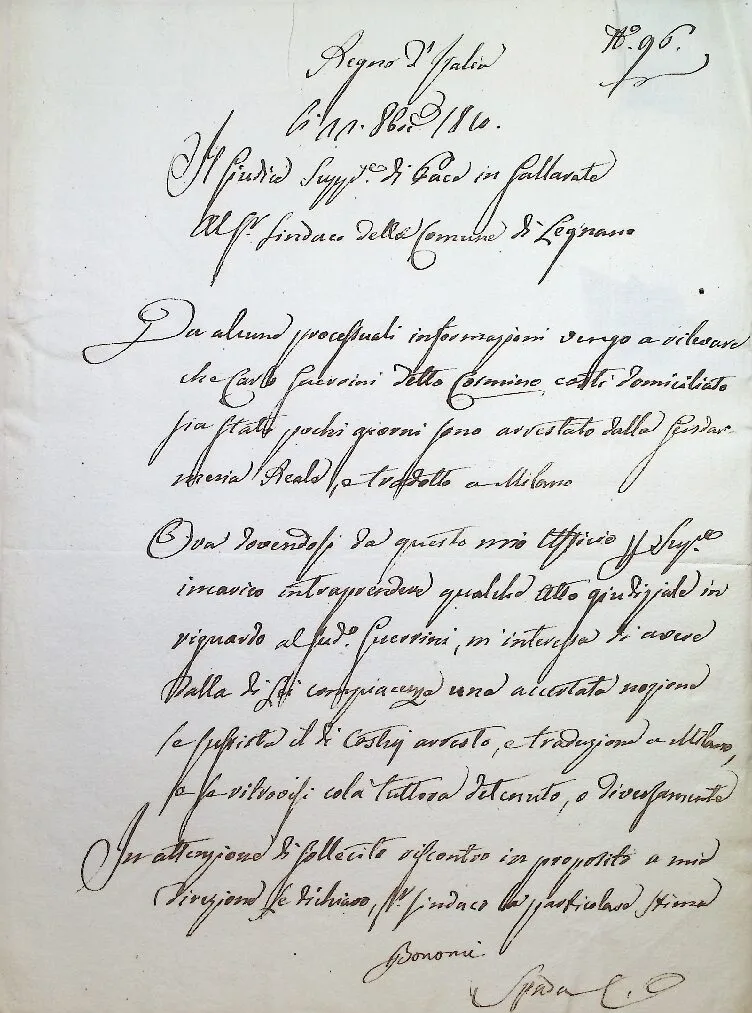 N.º 96.
Regno d'Italia
Li 11. 8bre 1810.
Il Giudice Supp.te di Pace in Gallarate
Al Sig.r Sindaco della Comune di Legnano
Da alcune processuali informazioni vengo a rilevare
che Carlo Guerrini detto Cosmino, costì domiciliato
sia stato pochi giorni sono arrestato dalla Gendar-
meria Reale, e tradotto a Milano
Ora dovendosi da questo mio Ufficio Sup.re
incarico intraprendere qualche Atto giudiziale in
riguardo al sud.º Guerrini, m'interessa di avere
dalla di Lei compiacenza una accertata nozione
se sussista il di Costui arresto, e traduzione a Milano,
e se ritrovisi colà tuttora detenuto, o diversamente
In attenzione di sollecito riscontro in proposito a mia
direzione Le dichiaro, Sr. Sindaco la particolare stima
Bonomi
Spada C.